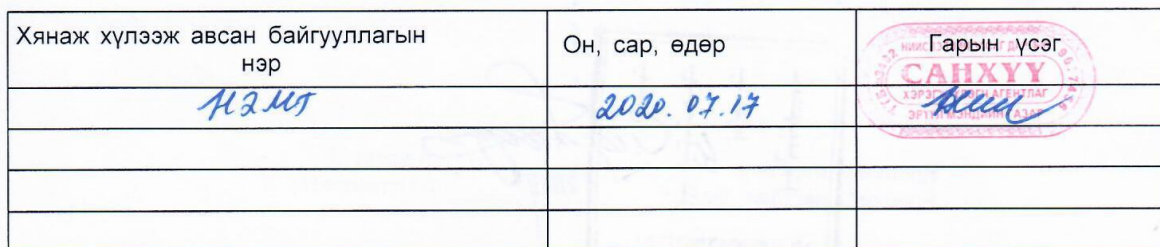 Хянаж хүлээж авсан байгууллагын
нэр
Он, сар, өдөр
Гарын үсэг
НЭМГ
2020.07.17
САНХҮҮ
АГЕНТЛАГ